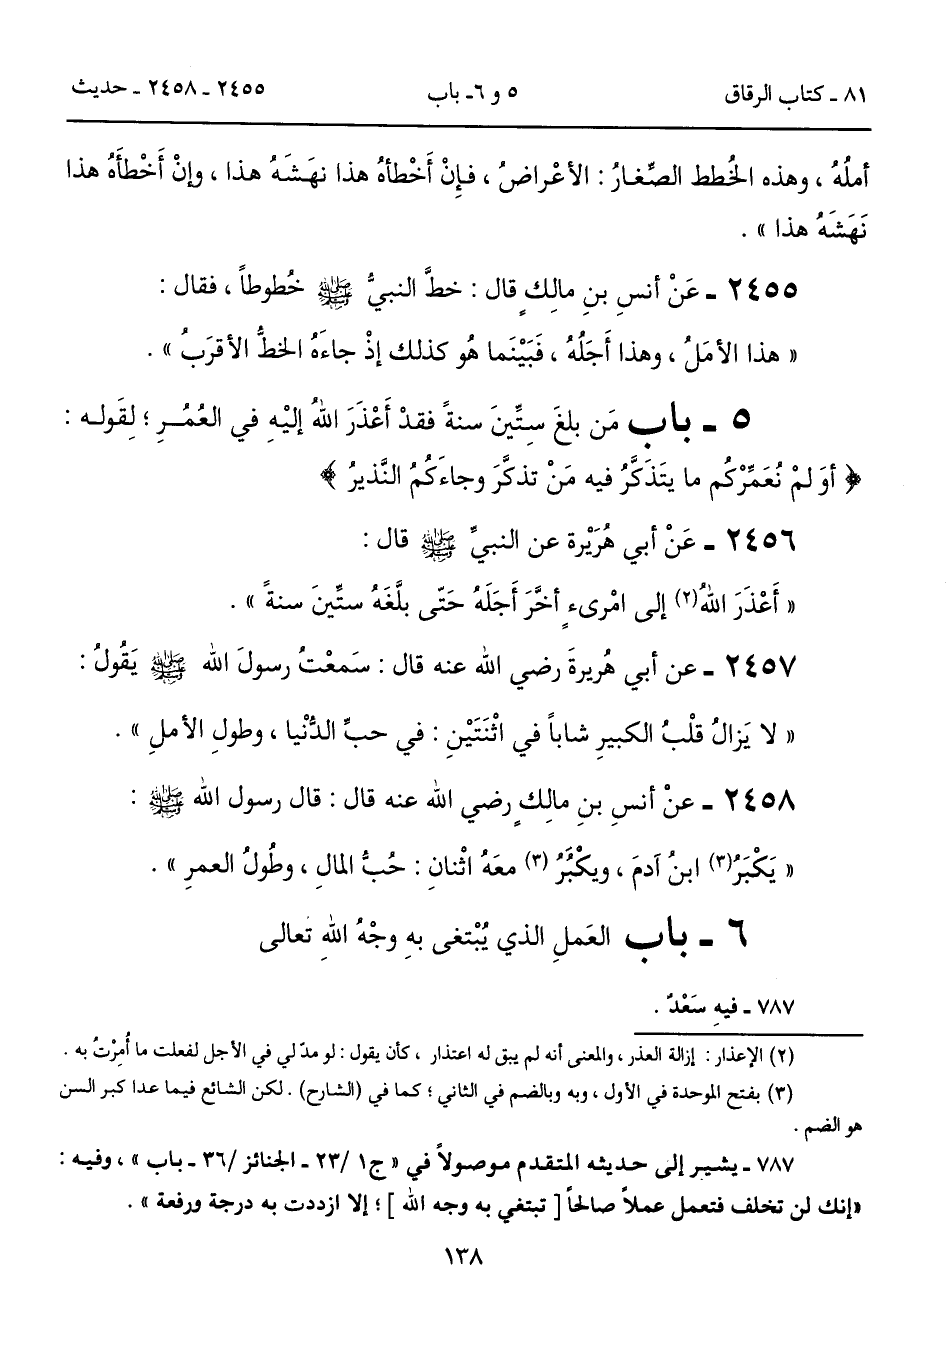 ٨١ - كتاب الرقاق ٥ و ٦- باب ٢٤٥٥ - ٢٤٥٨ - حديث
أملُهُ ، وهذه الخُطط الصِّغارُ : الأعْراضُ ، فإنْ أَخْطأهُ هذا نهَشَهُ هذا ، وإنْ أَخْطأَهُ هذا
نَهَشَهُ هذا » .
٢٤٥٥ - عَنْ أنسِ بنِ مالِكٍ قال : خطَّ النبيُّ ﷺ خُطوطاً ، فقال :
« هذا الأمَلُ ، وهذا أَجَلُهُ ، فَبَيْنَما هُو كذلك إذْ جاءَهُ الخطُّ الأقرَبُ » .
٥ - باب مَن بلغَ ستِّينَ سنةً فقدْ أَعْذَرَ اللهُ إليْهِ في العُمُرِ ؛ لِقَولـه :
﴿ أوَ لمْ نُعَمِّرْكُم ما يتَذكَّرُ فيه مَنْ تذكَّرَ وجاءَكُمُ النَّذيرُ ﴾
٢٤٥٦ - عَنْ أبي هُرَيْرة عن النبيِّ ﷺ قال :
« أَعْذَرَ اللهُ(٢) إلى امْرىءٍ أخَّرَ أَجَلَهُ حَتّى بلَّغَهُ ستِّينَ سنةً » .
٢٤٥٧ - عن أبي هُريرةَ رضي الله عنه قال : سَمعْتُ رسولَ الله ﷺ يَقُولُ :
« لا يَزالُ قلْبُ الكبيرِ شاباً في اثْنَتَيْنِ : في حبِّ الدُّنْيا ، وطولِ الأملِ » .
٢٤٥٨ - عنْ أنسِ بنِ مالِكٍ رضي الله عنه قال : قال رسول الله ﷺ :
« يَكْبَرُ(٣) ابنُ آدمَ ، ويكْبُرُ (٣) معَهُ اثْنانِ : حُبُّ المالِ ، وطُولُ العمرِ » .
٦ - باب العَملِ الذي يُبْتغى بهِ وجْهُ اللهِ تعالى
٧٨٧ - فيهِ سَعْدٌ .
(٢) الإعذار : إزالة العذر ، والمعنى أنه لم يبق له اعتذار ، كأن يقول : لو مدّ لي في الأجل لفعلت ما أُمِرْتُ به .
(٣) بفتح الموحدة في الأول ، وبه وبالضم في الثاني ؛ كما في (الشارح) . لكن الشائع فيما عدا كبر السن
هو الضم .
٧٨٧ - يشير إلى حديثه المتقدم موصولاً في « ج١ /٢٣ - الجنائز /٣٦ - باب » ، وفيه :
«إنك لن تخلف فتعمل عملاً صالحاً [ تبتغي به وجه الله ] ؛ إلا ازددت به درجة ورفعة » .
١٣٨